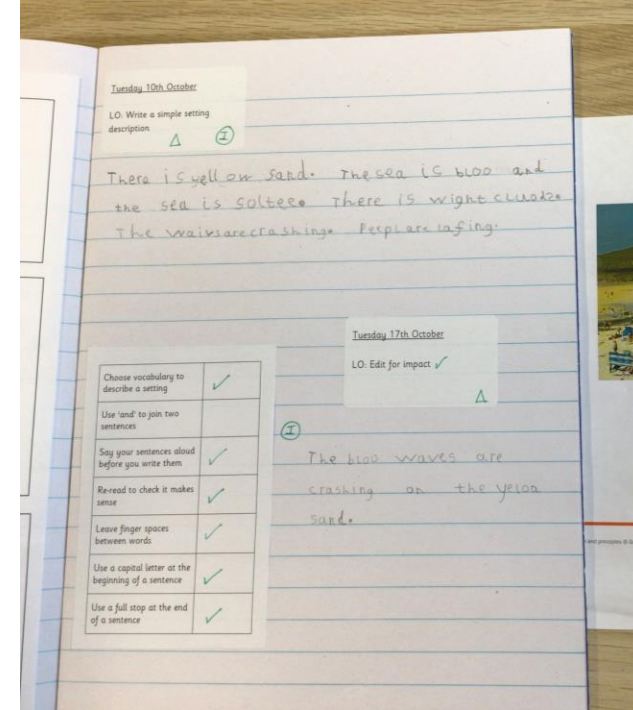 Tuesday 10th October
LO: Write a simple setting
description
Δ I
There is yellow sand. The sea is bloo and
the sea is soltee. There is wight cluodz.
The waivs are crashing. Peepl are lafing.
Tuesday 17th October
LO: Edit for impact ✓
Δ
Choose vocabulary to
describe a setting ✓
Use 'and' to join two
sentences
Say your sentences aloud
before you write them ✓
Re-read to check it makes
sense ✓
Leave finger spaces
between words ✓
Use a capital letter at the
beginning of a sentence ✓
Use a full stop at the end
of a sentence ✓
I
The bloo waves are
crashing on the yeloa
sand.
and principles ©